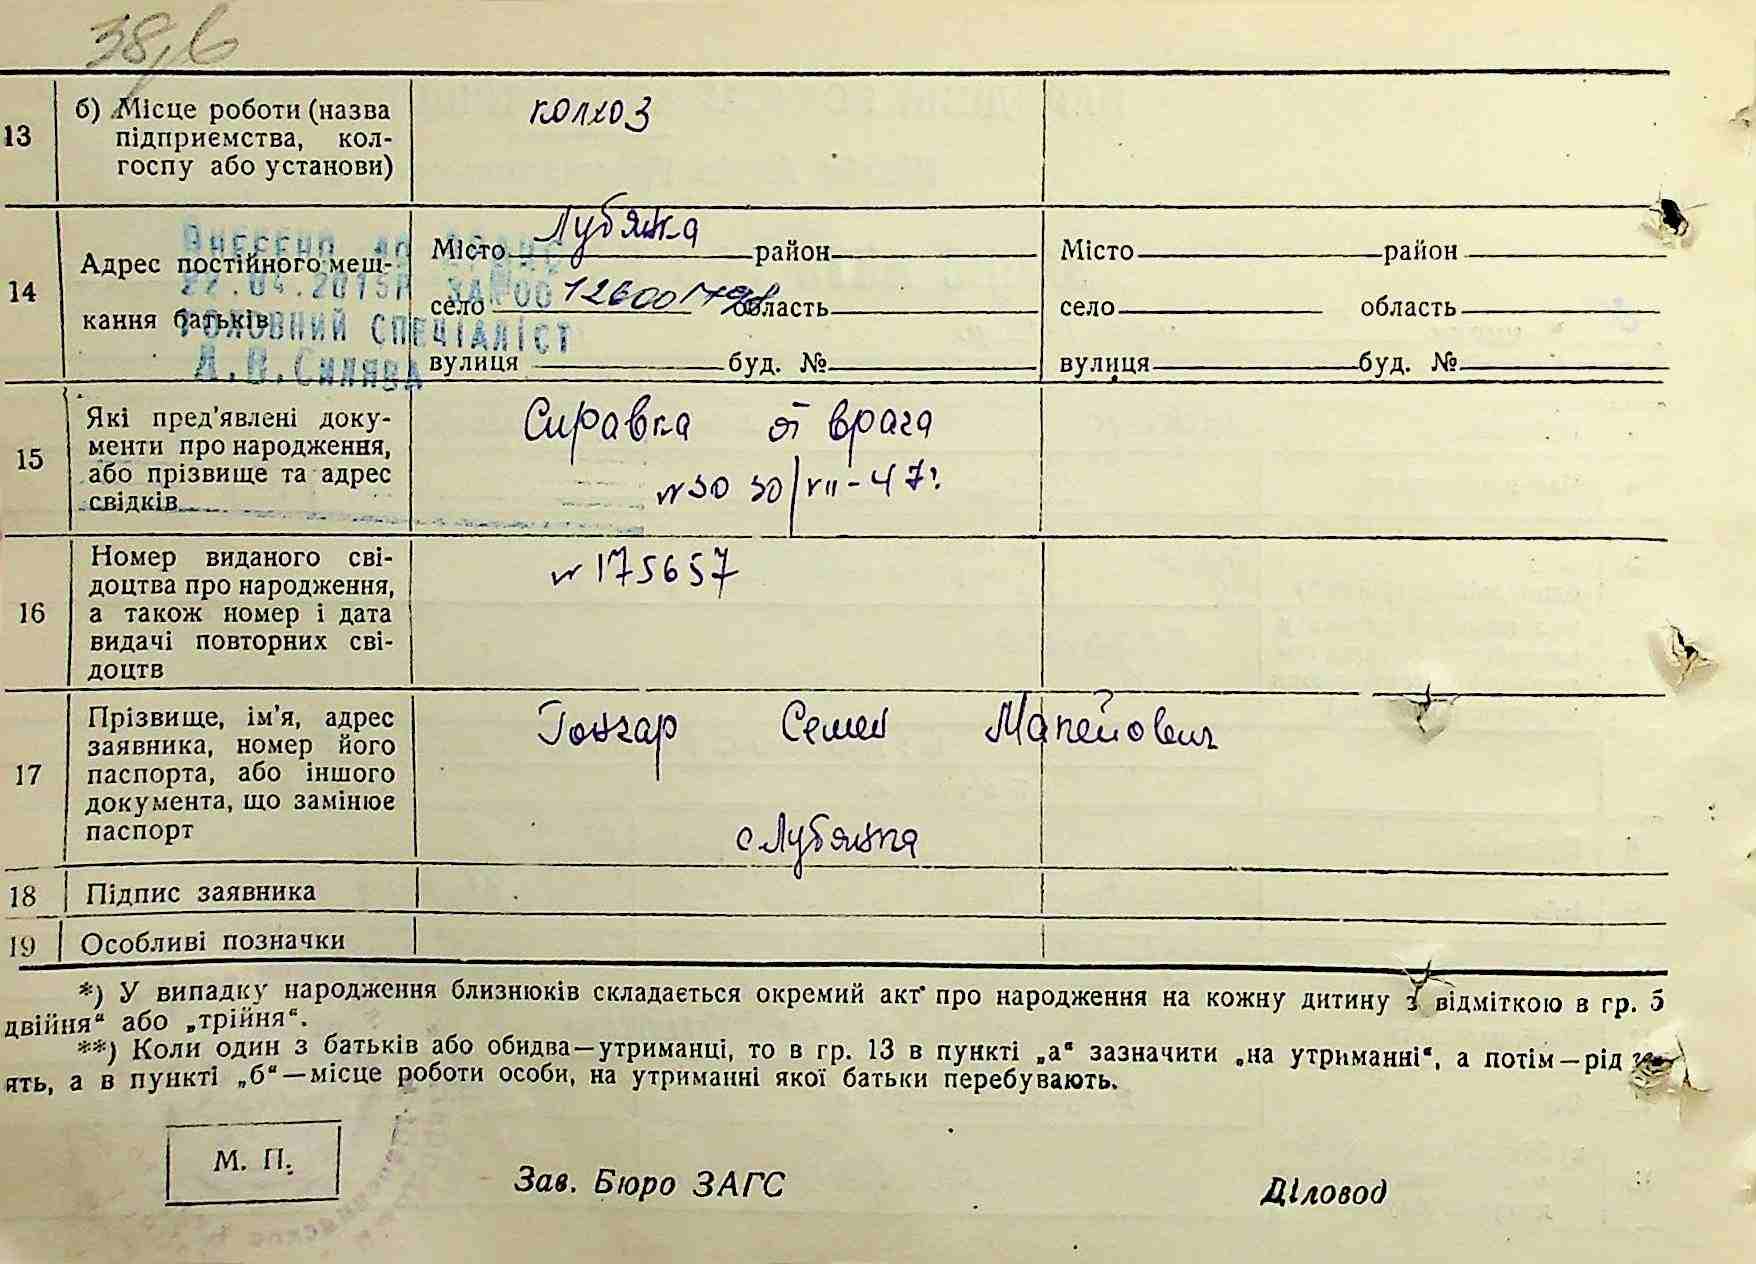 38,6
13
б) Місце роботи (назва
підприємства, кол-
госпу або установи)
колхоз
14
Адрес постійного меш-
кання батьків
Внесено до
22.04.2015р. ЗА №00
ГОЛОВНИЙ СПЕЦІАЛІСТ
Місто Лубянка район
село 126001798 область
вулиця буд. №
Місто район
село область
вулиця буд. №
15
Які пред'явлені доку-
менти про народження,
або прізвище та адрес
свідків
Справка от врача
№30 30/VII-47г
16
Номер виданого сві-
доцтва про народження,
а також номер і дата
видачі повторних сві-
доцтв
№ 175657
17
Прізвище, ім'я, адрес
заявника, номер його
паспорта, або іншого
документа, що замінює
паспорт
Гончар Семен
с Лубянка
18
Підпис заявника
19
Особливі позначки
*) У випадку народження близнюків складається окремий акт про народження на кожну дитину з відміткою в гр. 5
двійня“ або „трійня“.
**) Коли один з батьків або обидва—утриманці, то в гр. 13 в пункті „а“ зазначити „на утриманні“, а потім—рід
ять, а в пункті „б“—місце роботи особи, на утриманні якої батьки перебувають.
М. П.
Зав. Бюро ЗАГС
Діловод